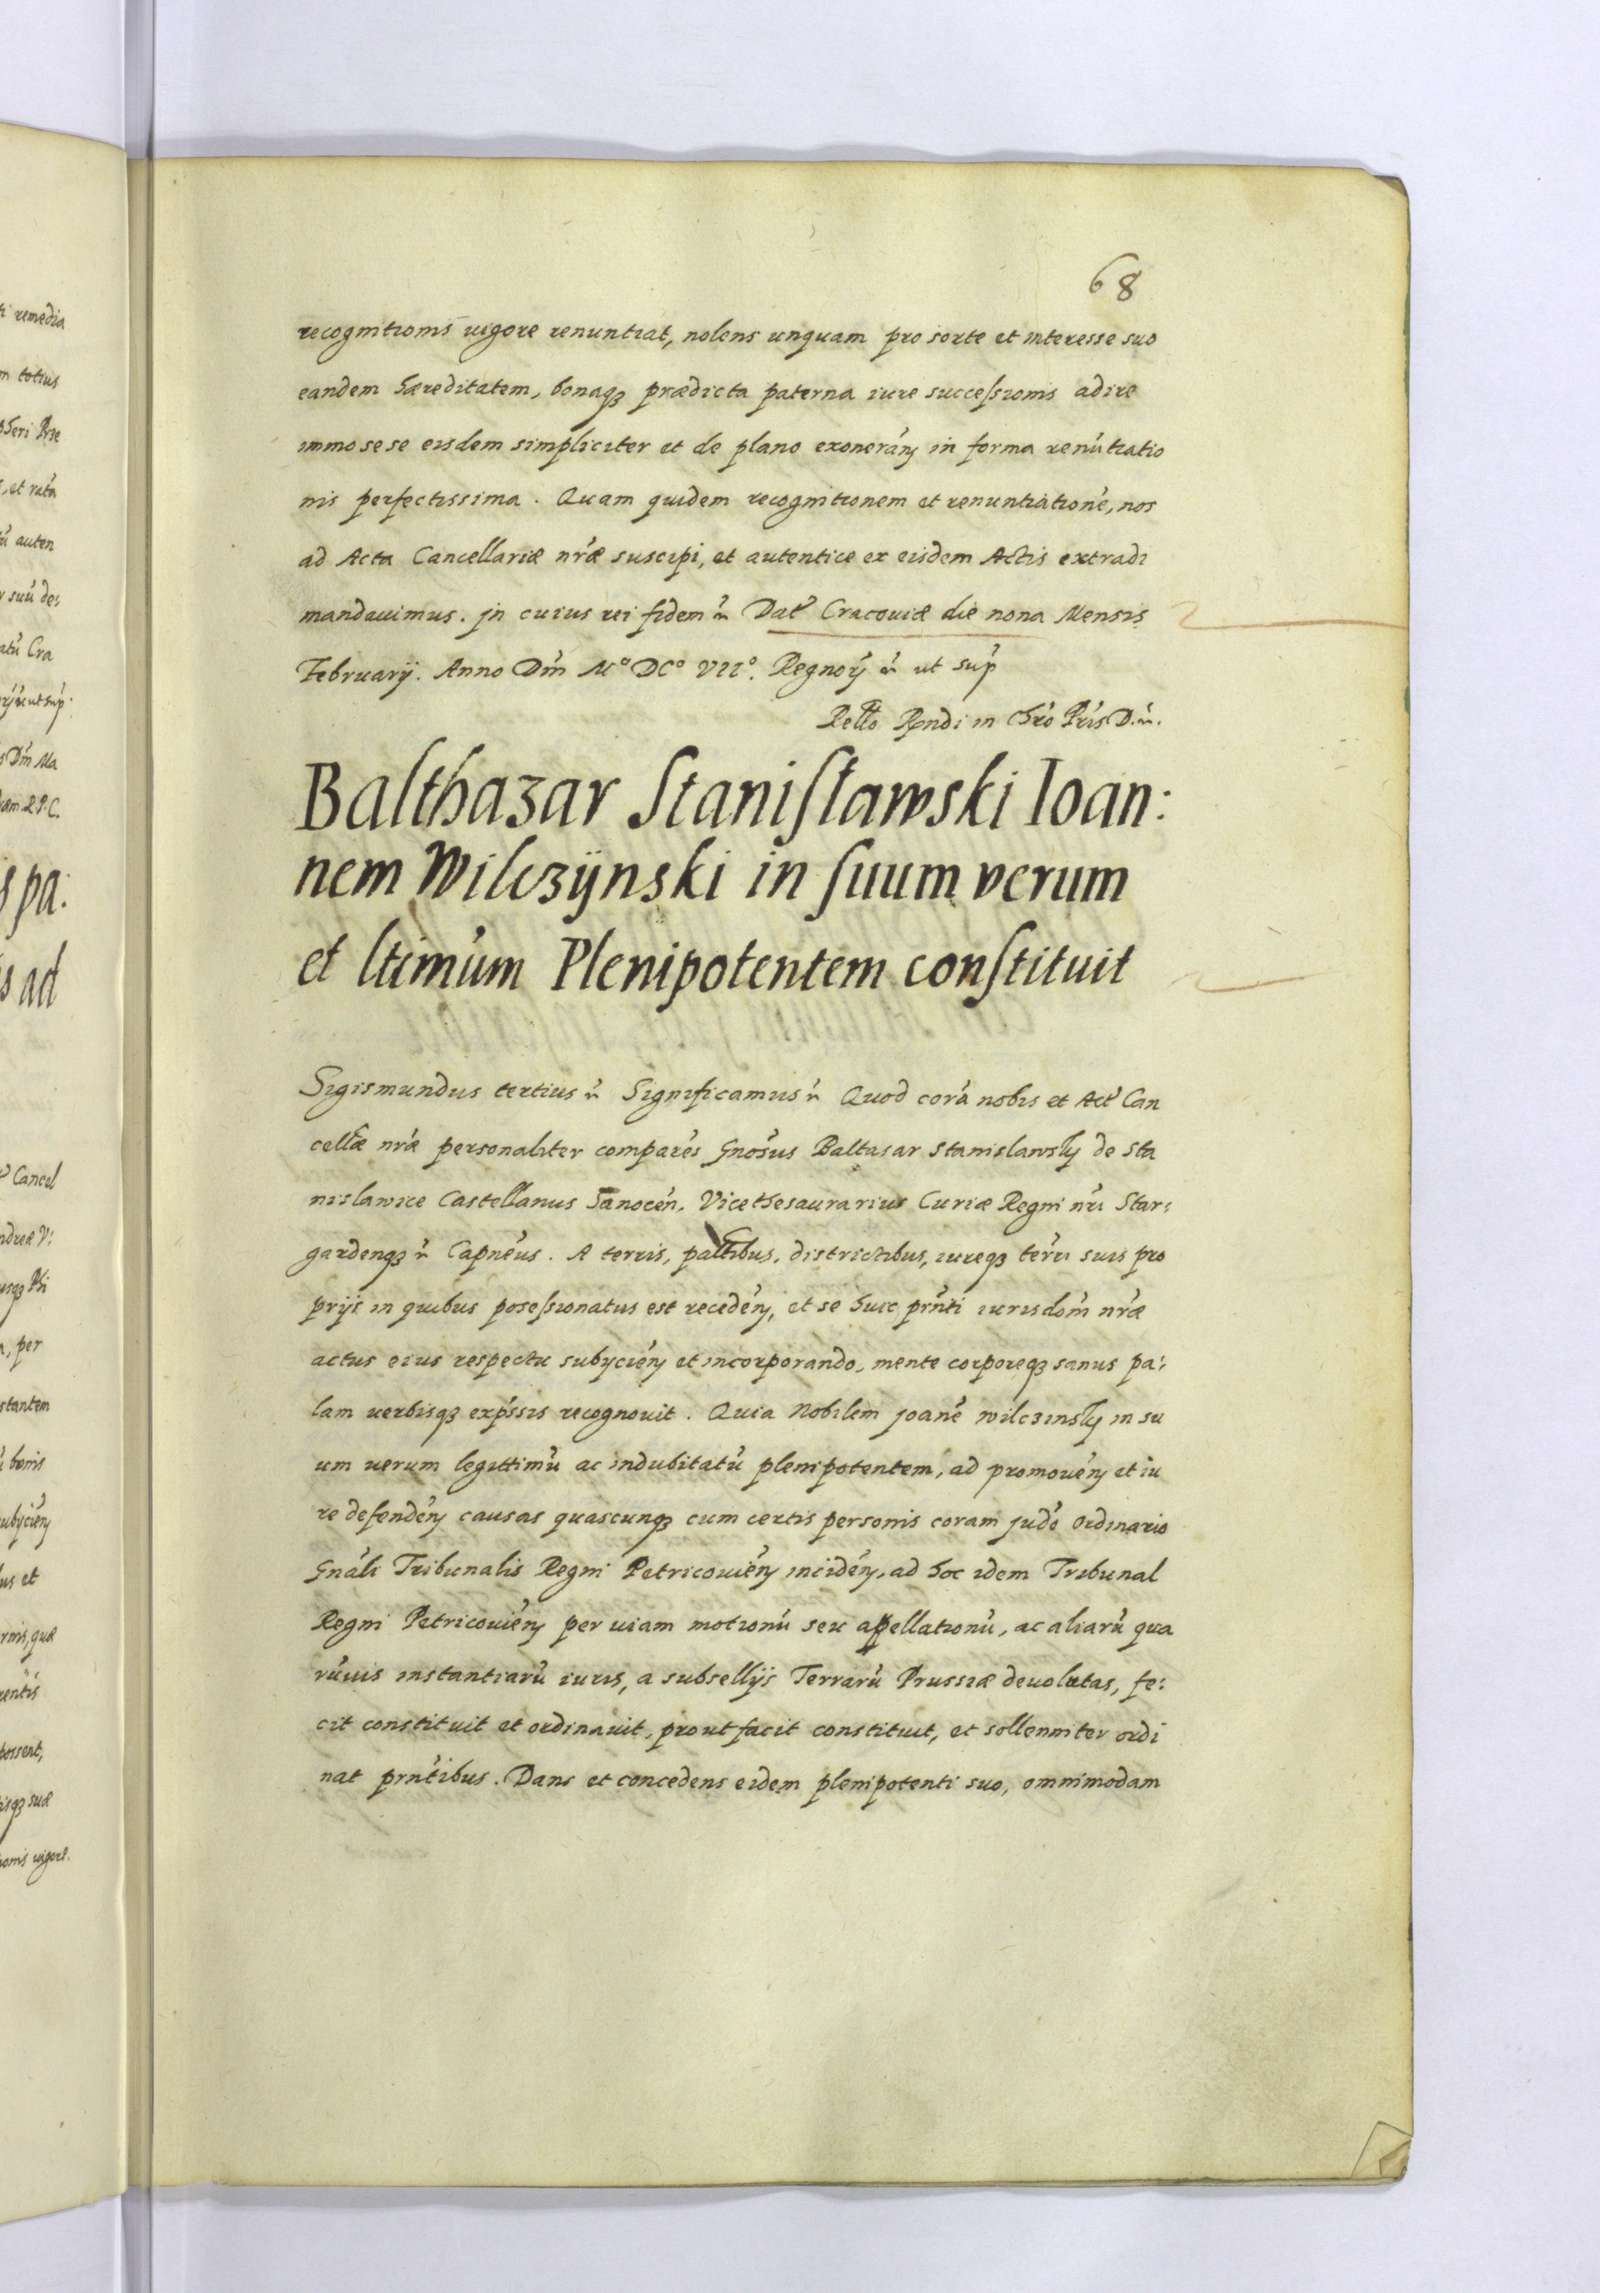 68
recognitionis uigore renuntiat, nolens unquam pro sorte et interesse suo
eandem hæreditatem, bonaqȝ prædicta paterna iure successionis adire
immo sese eisdem simpliciter et de plano exonerán̄ in forma renútiatio
nis perfectissima. Quam quidem recognitionem et renuntiatione̍, nos
ad Acta Cancellariæ nr̃æ suscipi, et autentice ex eisdem Actis extradi
mandauimus. Jn cuius rei fidem &c̃ Dat̃ Cracouiæ die nona Mensis
Februarij. Anno Dn̄i Mº DCº VIIº. Regnor̃ &c̃ ut sup̃
Rel̃to Rp̃ndi in Chr̃o Pr̃is D. &c̃.
Balthazar Stanisławski Ioan:
nem Wilczÿnski in suum verum
et ltimúm Plenipotentem constituit
Sigismundus tertius &c̃ Significamus &c̃ Quod corá nobis et Act̃ Can
cell̃æ nr̃æ personaliter compare̍s Gnosús Baltasar Stanislawsky de Sta
nislawice Castellanus Sanocén. Vicethesaurarius Curiæ Regni nr̃i Star:
gardenqȝ &c̃ Capnéus. A terris, palt̃ibus, districtibus, iureqȝ ter̃ri suis pro
prijs in quibus posessionatus est recedén̄, et se huic pr̃nti iurisdom̃ nr̃æ
actus eius respectu subyción̄ et incorporando, mente corporeqȝ sanus pa:
lam uerbisqȝ exp̃ssis recognouit. Quia Nobilem Joane̍ Wilczinsky in su
um uerum legittimú ac indubitatú plenipotentem, ad promouén̄ et iu
re defendén̄ causas quascunqȝ cum certis personis coram Judó Ordinario
Gnáli Tribunalis Regni Petricouién̄ incidén̄, ad hoc idem Tribunal
Regni Petricouién̄ per uiam motionú seu apellationú, ac aliarú qua
rúuis instantiarú iuris, a subsellijs Terrarú Prussiæ deuolutas, fe:
cit constituit et ordinauit, prout facit constituit, et sollenniter ordi
nat prńtibus. Dans et concedens eidem plenipotenti suo, omnimodam